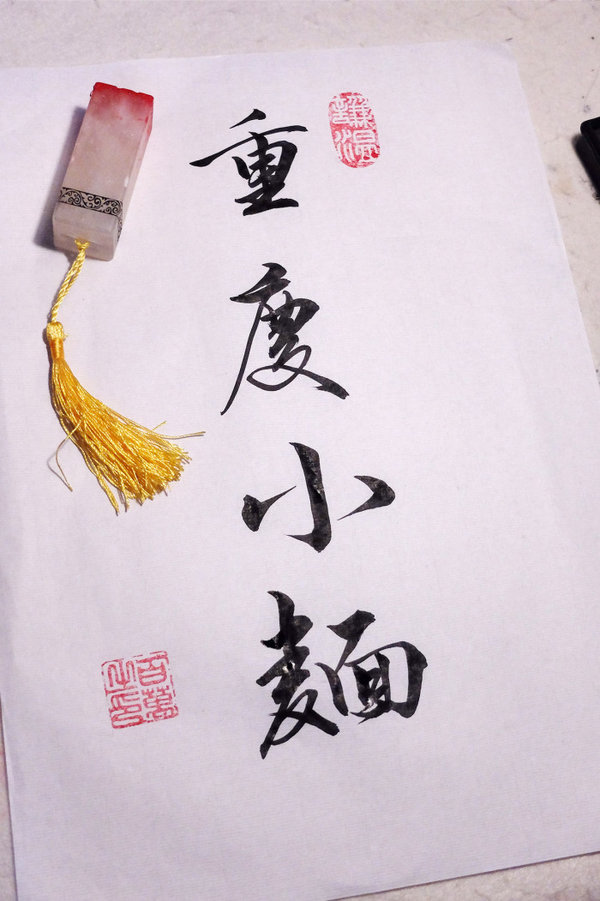 重慶小麵